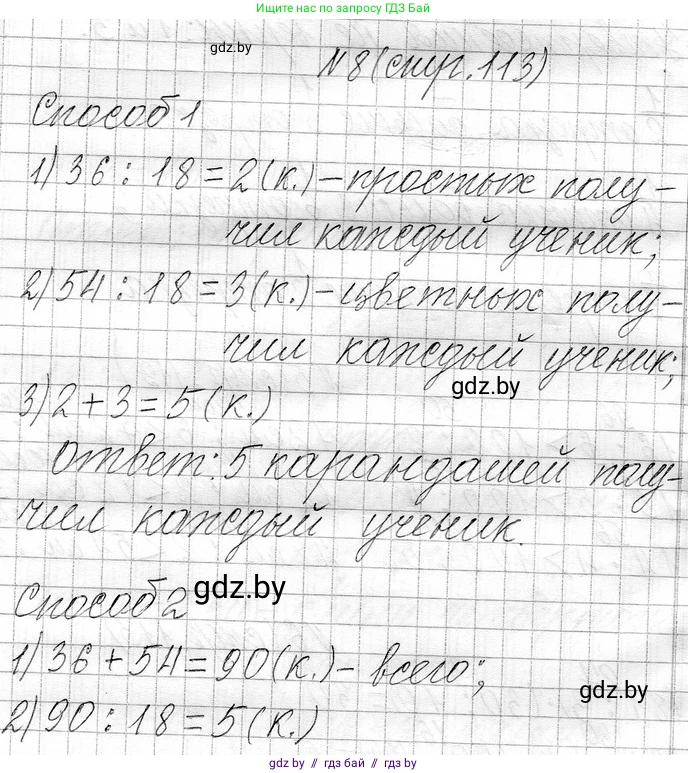 Ищите нас в поиске по запросу ГДЗ Бай
gdz.by
№8(стр.113)
Способ 1
1) 36 : 18 = 2(к.) – простых полу-
чил каждый ученик;
2) 54 : 18 = 3(к.) – цветных полу-
чил каждый ученик;
gdz.by
3) 2 + 3 = 5 (к.)
Ответ: 5 карандашей полу-
чил каждый ученик.
gdz.by
Способ 2
1) 36 + 54 = 90(к.) – всего;
gdz.by
2) 90 : 18 = 5(к.)
gdz.by // гдз бай // гдз by